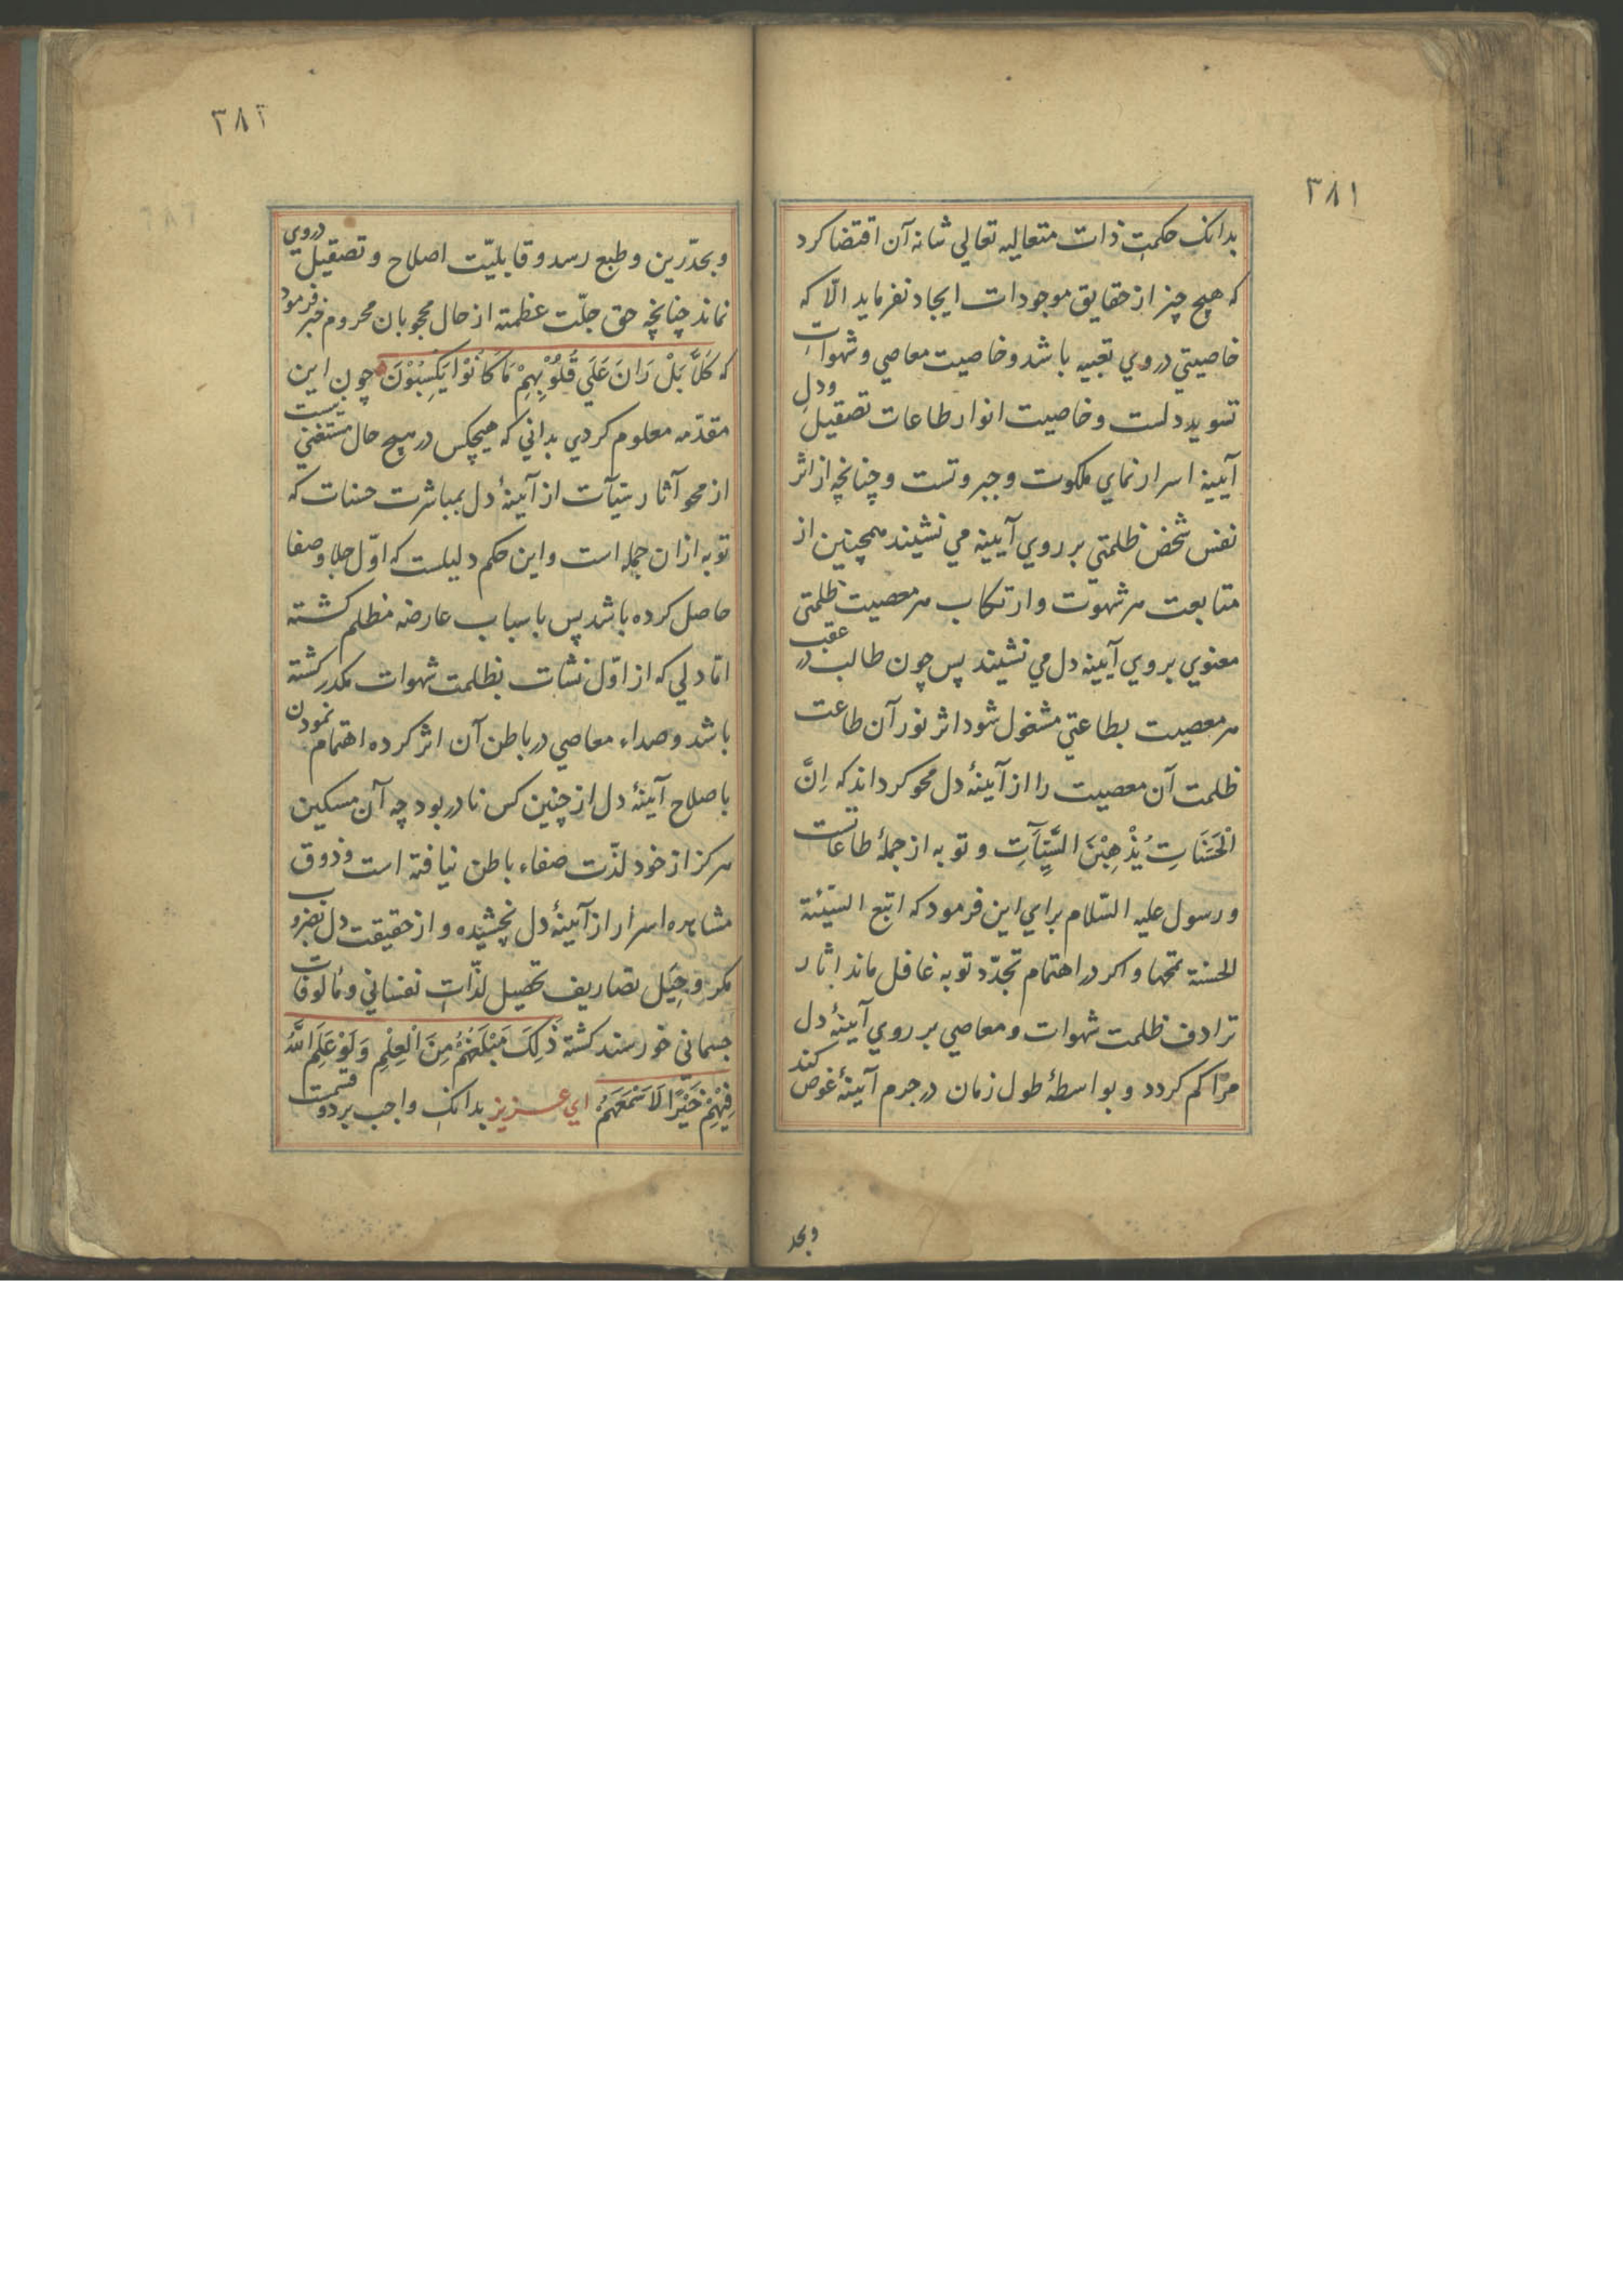 ۳۸۱
بدانک حکمت ذات متعالیه تعالی شانه آن اقتضا کرد
که هیچ چیز از حقایق موجودات ایجاد نفرماید الّا که
خاصیتي در وي تعبیه باشد و خاصیت معاصي و شهوات
تسوید دلست و خاصیت انوار طاعات تصقیل و دل
آیینهٔ اسرار نماي ملکوت و جبروتست و چنانچه از اثر
نفس شخص ظلمتي بر روي آیینه مي نشیند همچنین از
متابعت هر شهوت و ارتکاب هر معصیت ظلمتی
معنوي بر روي آیینه دل مي نشیند پس چون طالب در عقب
هر معصیت بطاعتي مشغول شود اثر نور آن طاعت
ظلمت آن معصیت را از آیینهٔ دل محو کرداند که اِنَّ
الْحَسَنَاتِ یُذْهِبْنَ السَّیِّآَتِ و توبه از جملهٔ طاعاتست
و رسول علیه السّلام براي این فرمود که اتبع السّیّئة
الحسنة تمحها و اکر در اهتمام تجدّد توبه غافل ماند اثار
ترادف ظلمت شهوات و معاصي بر روي آیینهٔ دل
متراکم کردد و بواسطهٔ طول زمان در جرم آیینهٔ غوص کند
وبحد
۳۸۲
و بحدّ رین و طبع رسد و قابلیّت اصلاح و تصقیل در وی
نماند چنانچه حق جلّت عظمته از حال محجوبان محروم خبر فرمود
که کَلَّا بَلْ رَانَ عَلَي قُلُوْبِهِمْ مَا کَانُوْا یَکْسِبُوْنَ چون این
مقدّمه معلوم کردي بداني که هیچکس در هیچ حال مستغني نیست
از محو آثار سیّآت از آیینهٔ دل بمباشرت حسنات که
توبه از ان جمله است و این حکم دلیلست که اوّل جلا و صفا
حاصل کرده باشد پس باسباب عارضه مظلم کشته
امّا دلي که از اوّل نشات بظلمت شهوات مکدر کشته
باشد و صداء معاصي در باطن آن اثر کرده اهتمام نمودن
باصلاح آیینهٔ دل از چنین کس نادر بود چه آن مسکین
هرکز از خود لذّت صفاء باطن نیافته است و ذوق
مشاهده اسرار از آیینهٔ دل نچشیده و از حقیقت دل بضروب
مکر و حِیَل تصاریف تحصیل لذّاتِ نفساني و مألوفات
جسماني خورسند کشته ذٰلِکَ مَبْلَغُهُمْ مِنَ الْعِلْمِ وَلَوْ عَلِمَ اللّٰهُ
فِیْهِمْ خَیْرًا لَاَسْمَعَهُمْ اي عزیز بدانک واجب بر دو قسمت